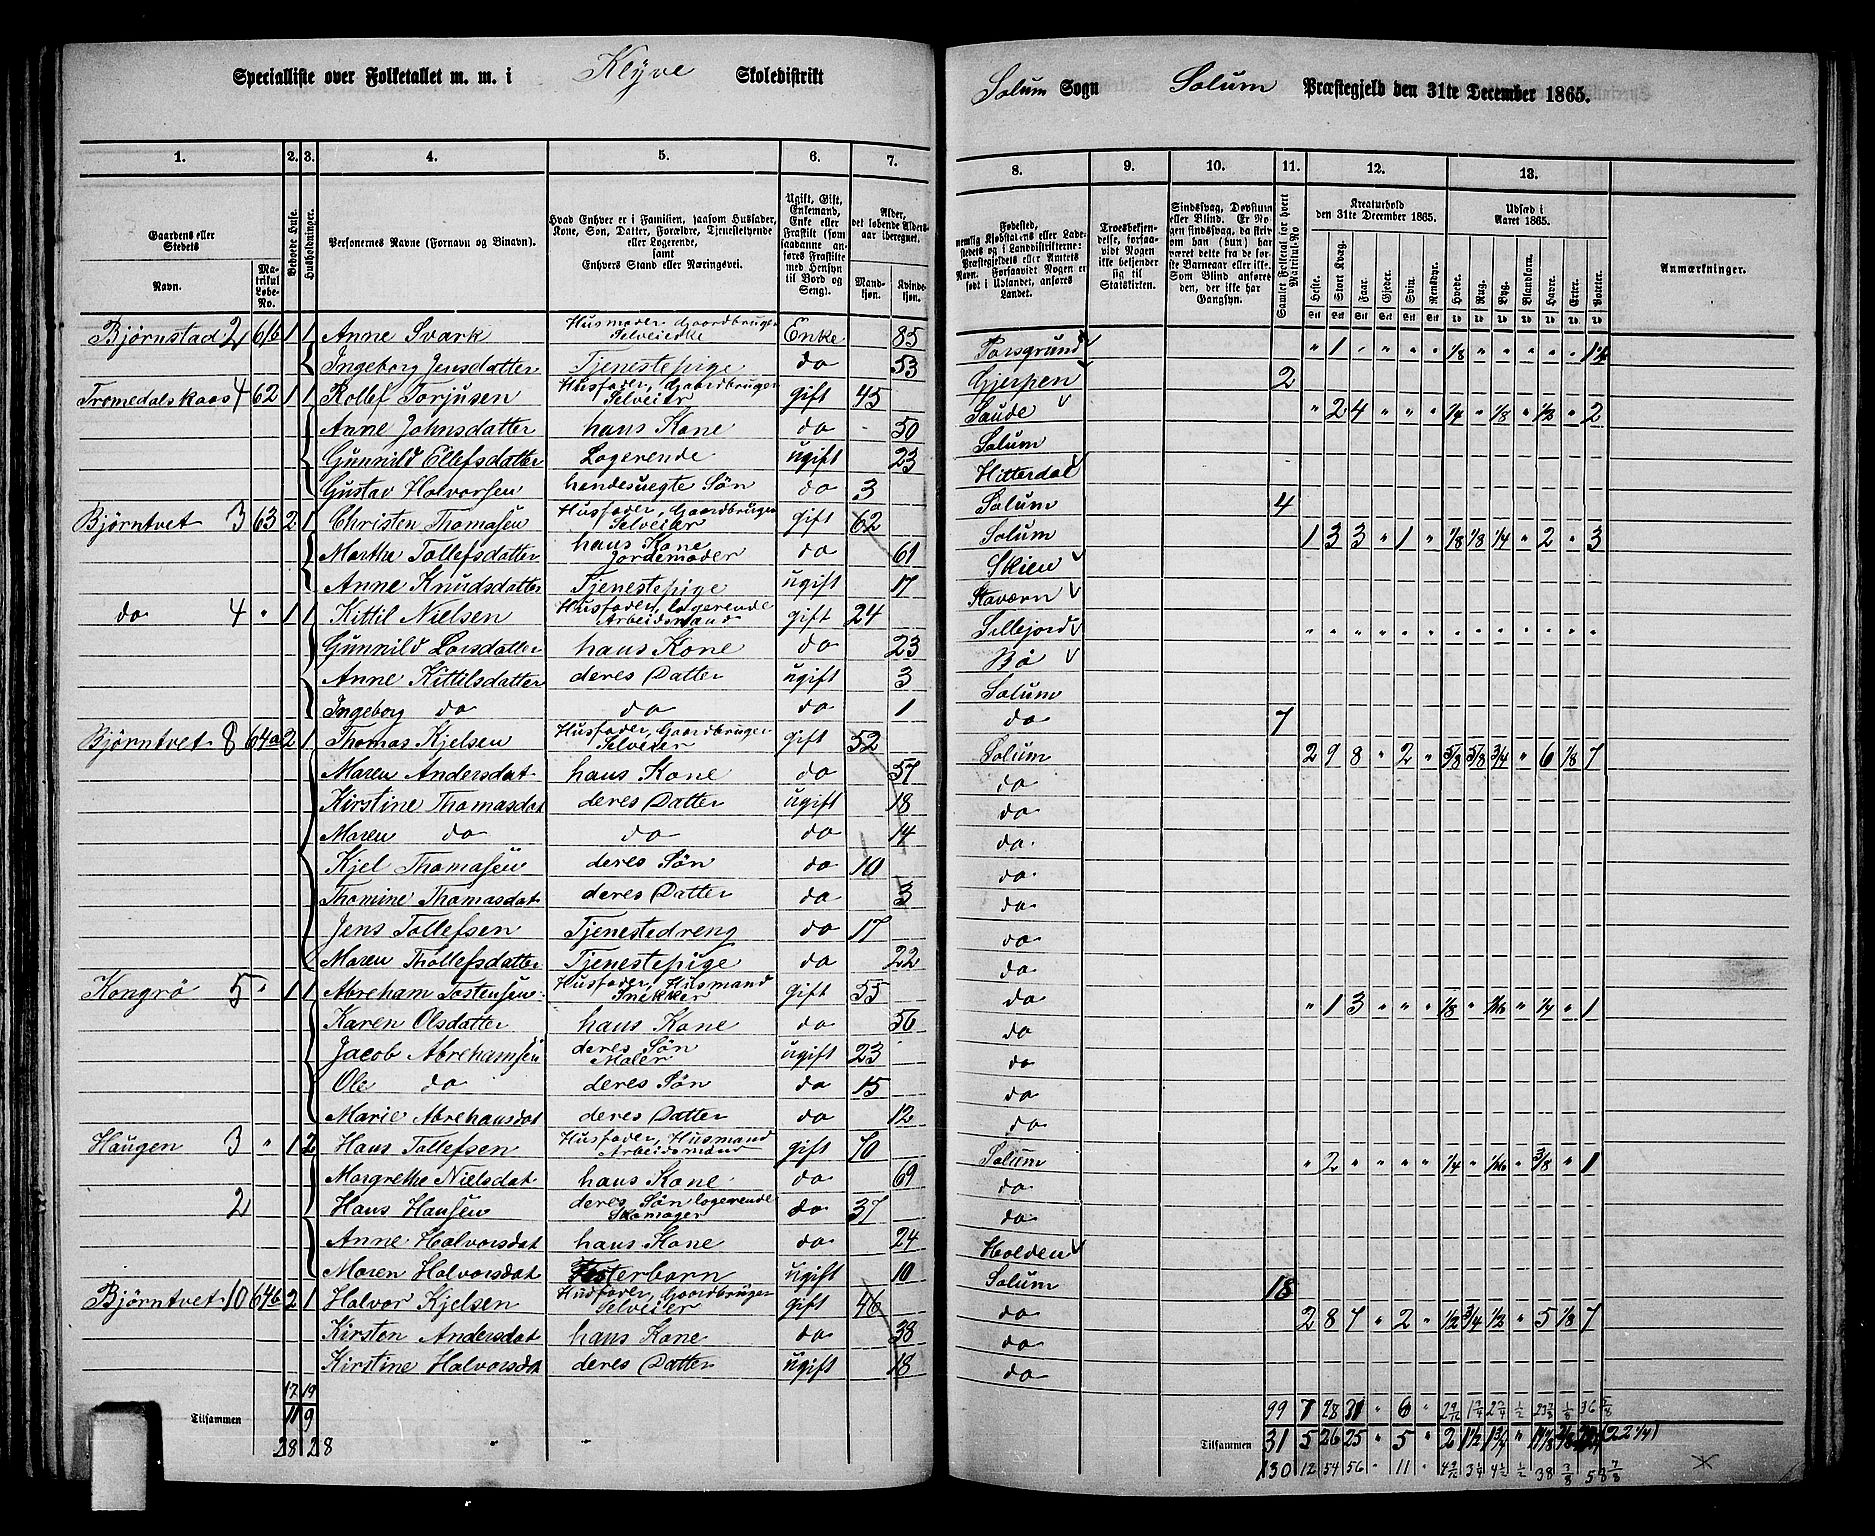 Specialliste over Folketallet m. m. i Klyve Skoledistrikt
Solum Sogn Solum Præstegjeld den 31te December 1865.
1. 2. 3. 4. 5. 6. 7.
8. 9. 10. 11. 12. 13.
Gaardens eller Stedets
Navn.
Matrikul Løbe-No.
Beboede Huse.
Husholdninger.
Personernes Navne (Fornavn og Binavn).
Hvad Enhver er i Familien, saasom Husfader, Kone, Søn, Datter, Forældre, Tjenestetyende eller Logerende, samt Enhvers Stand eller Næringsvei.
Ugift, Gift, Enkemand, Enke eller Fraskilt (som saadanne anføres Fraskilte med Hensyn til Bord og Seng).
Alder, det løbende Aldersaar iberegnet.
Mandkjøn. Kvindekjøn.
Fødested, nemlig Kjøbstadens eller Ladestedets og i Landdistrikterne: Præstegjeldets eller Amtets Navn. Forsaavidt Nogen er født i Udlandet, anføres Landet.
Troesbekjendelse, forsaavidt Nogen ikke bekjender sig til Statskirken.
Sindssvag, Døvstum eller Blind. Er Nogen sindssvag, da skrives om han (hun) har været dette fra de første Barneaar eller ikke. Som Blind anføres den, der ikke har Gangsyn.
Samlet Folketal for hvert Matrikul-No
Kreaturhold den 31te December 1865.
Heste. Stort Kvæg. Faar. Gjeder. Svin. Rensdyr.
Udsæd i Aaret 1865.
Hvede. Rug. Byg. Blandkorn. Havre. Erter. Poteter.
Anmærkninger.
Bjørnstad 2 66 1 1 Anne Svark Husmoder Gaardbruger Selveierske Enke 85 Porsgrund " 1 " " " " 1/8 " " " " " 1½
Ingeborg Jensdatter Tjenestepige do 53 Gjerpen 2
Tromedalskaas 4 62 1 1 Rollef Torjusen Husfader, Gaardbruger Selveier gift 45 Saude " 2 4 " " " ¼ " 1/8 " ½ " 2
Anne Johnsdatter hans Kone do 50 Solum
Gunnild Ellefsdatter Logerende ugift 23 Hitterdal
Gustav Halvorsen hendes uegte Søn do 3 Solum 4
Bjørntvet 3 63 2 1 Christen Thomasen Husfader, Gaardbruger Selveier gift 62 Solum 1 3 3 " 1 " 1/8 1/8 ¼ " 2 " 3
Marthe Tollefsdatter hans Kone Jordemoder do 61 Skien
Anne Knudsdatter Tjenestepige ugift 17 Staværn
do 4 " 1 1 Kittil Nielsen Husfader, logerende Arbeidsmand gift 24 Sillejord
Gunnild Larsdatter hans Kone do 23 Bø
Anne Kittilsdatter deres Datter ugift 3 Solum
Ingeborg do do do 1 do 7
Bjørntvet 8 64a 2 1 Thomas Kjelsen Husfader, Gaardbruger Selveier gift 52 Solum 2 9 8 " 2 " 5/8 5/8 ¾ " 6 1/8 7
Maren Andersdat hans Kone do 57 do
Kirstine Thomasdat deres Datter ugift 18 do
Maren do do do 14 do
Kjel Thomasen deres Søn do 10 do
Thomine Thomasdat deres Datter do 3 do
Jens Tollefsen Tjenestedreng do 17 do
Maren Thollefsdatter Tjenestepige do 22 do
Kongrø 5 " 1 1 Abreham Tostensen Husfader, Husmand Snekker gift 55 do " 1 3 " " " 1/8 " 1/16 " ¼ " 1
Karen Olsdatter hans Kone do 56 do
Jacob Abrehamsen deres Søn Maler ugift 23 do
Ole do deres Søn do 15 do
Marie Abrehamsdat deres Datter do 12 do
Haugen 3 " 1 2 Hans Tollefsen Husfader, Husmand Arbeidsmand gift 70 Solum " 2 " " " " ¼ " 1/16 " 3/8 " 1
Margrethe Nielsdat hans Kone do 69 do
2 Hans Hansen deres Søn logerende Skomager do 37 do
Anne Halvorsdat hans Kone do 24 Holden
Maren Halvorsdat Fosterbarn ugift 10 Solum 18
Bjørntvet 10 64b 2 1 Halvor Kjelsen Husfader, Gaardbruger Selveier gift 46 do 2 8 7 " 2 " ½ ¾ ½ " 5 1/8 7
Kirsten Andersdat hans Kone do 38 do
Kirstine Halvorsdat deres Datter ugift 18 do
17 19
Tilsammen 11 9
28 28
99 7 28 31 " 6
Tilsammen 31 5 26 25 " 5 " 2 1½ 1¾
130 12 54 56 " 11